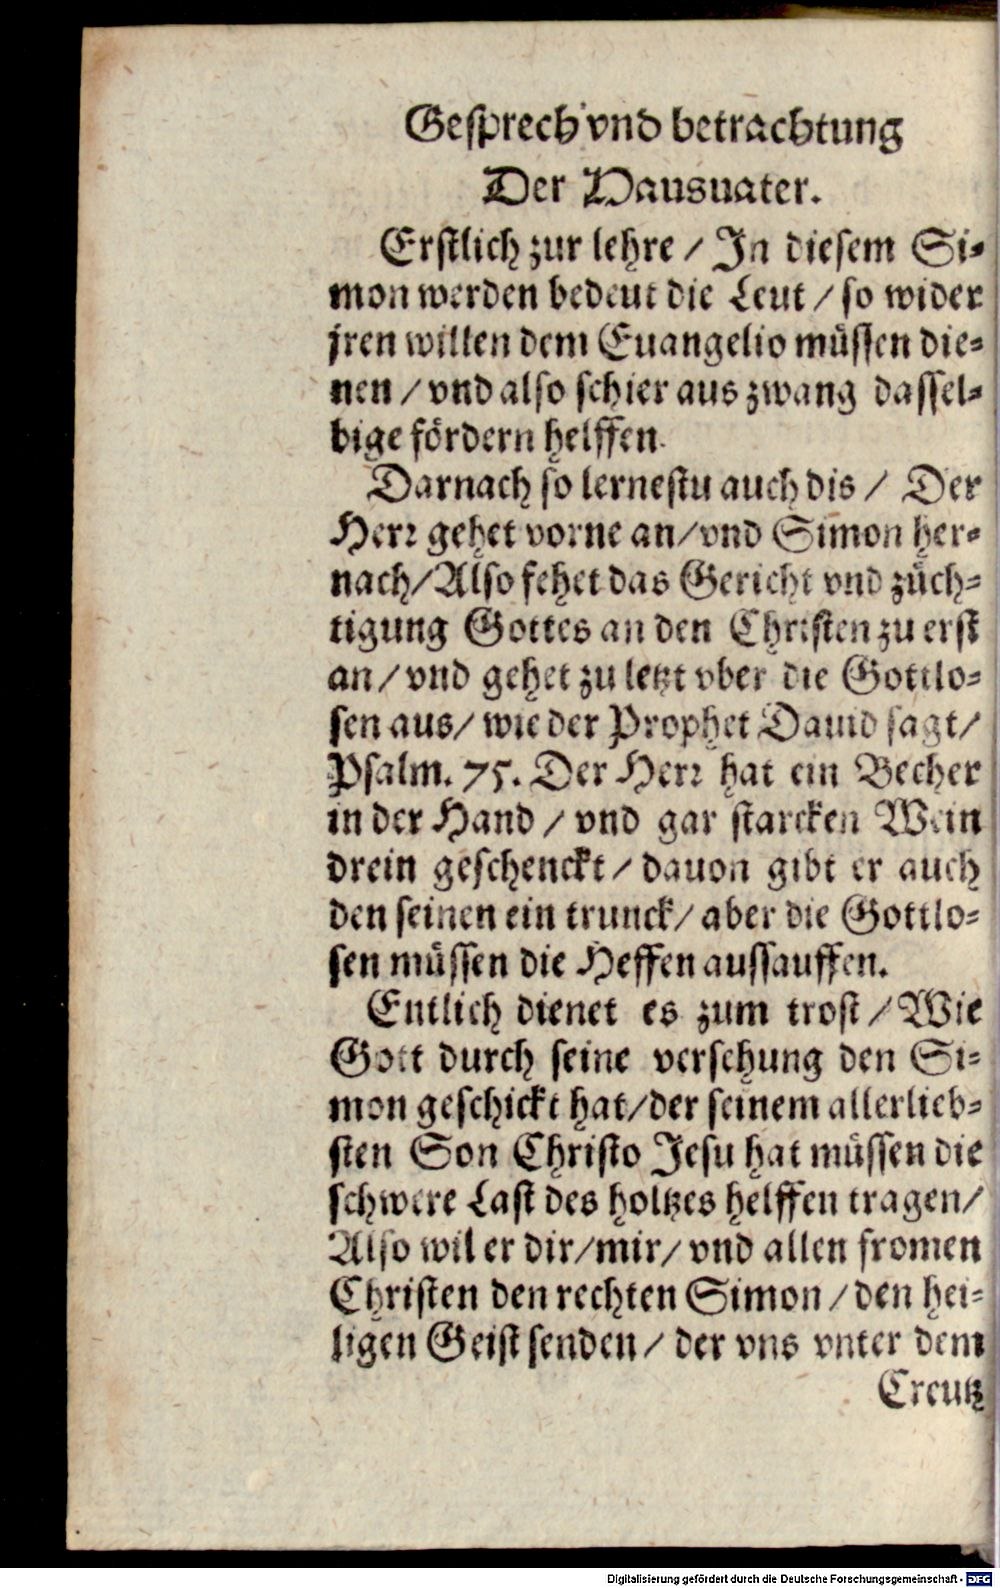 Gesprech vnd betrachtung
Der Hausuater.
Erstlich zur lehre / In diesem Si-
mon werden bedeut die Leut / so wider
jren willen dem Euangelio müssen die-
nen / vnd also schier aus zwang dassel-
bige fördern helffen.
Darnach so lernestu auch dis / Der
Herr gehet vorne an / vnd Simon her-
nach / Also fehet das Gericht vnd züch-
tigung Gottes an den Christen zu erst
an / vnd gehet zu letzt vber die Gottlo-
sen aus / wie der Prophet Dauid sagt /
Psalm. 75. Der Herr hat ein Becher
in der Hand / vnd gar starcken Wein
drein geschenckt / dauon gibt er auch
den seinen ein trunck / aber die Gottlo-
sen müssen die Heffen aussauffen.
Entlich dienet es zum trost / Wie
Gott durch seine versehung den Si-
mon geschickt hat / der seinem allerlieb-
sten Son Christo Jesu hat müssen die
schwere Last des holtzes helffen tragen /
Also wil er dir / mir / vnd allen fromen
Christen den rechten Simon / den hei-
ligen Geist senden / der vns vnter dem
Creutz
Digitalisierung gefördert durch die Deutsche Forschungsgemeinschaft - DFG